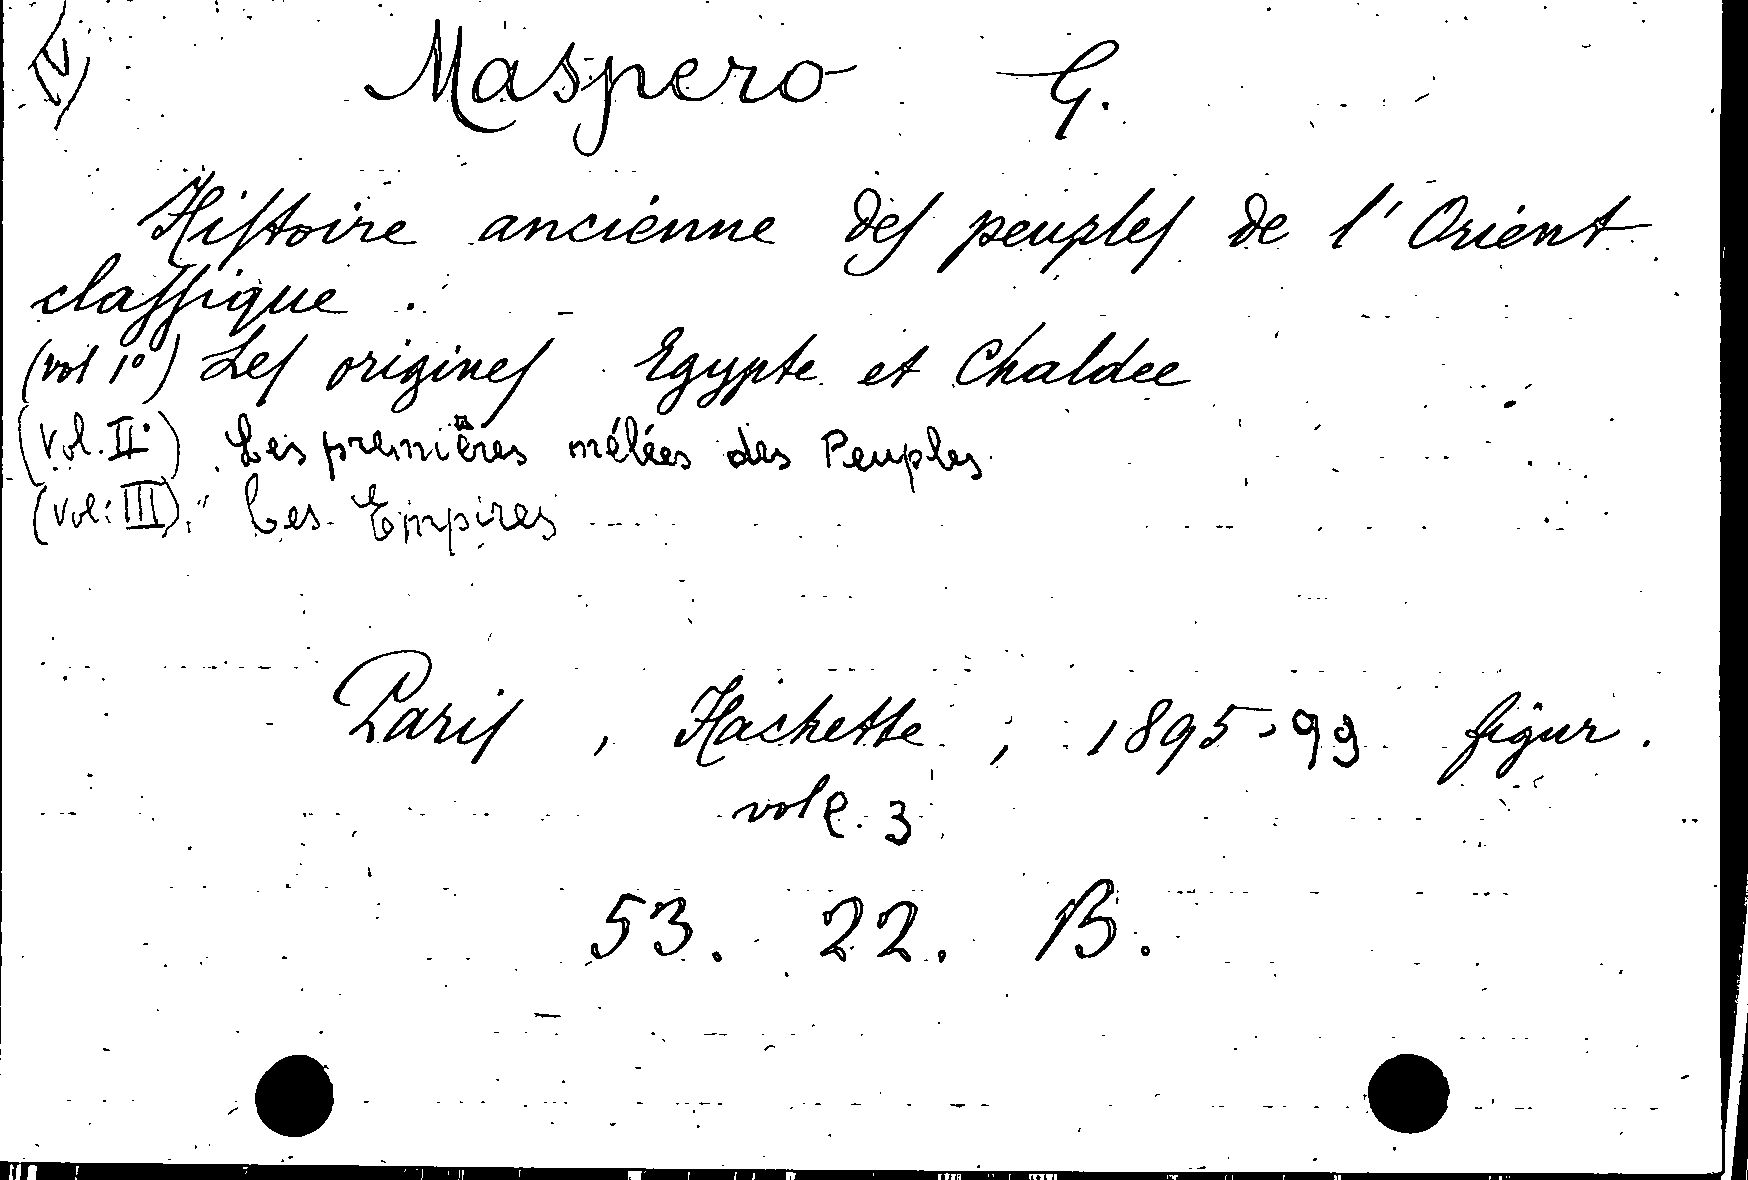 IV
Maspero G.
Histoire ancienne des peuples de l'Orient
classique.
(vol 1°) Les origines Egypte et Chaldee
(Vol. II°) Les premières mêlées des Peuples
(vol: III). " Les Empires
Paris, Hachette, 1895-99 figur.
vol. 3
53. 22. B.